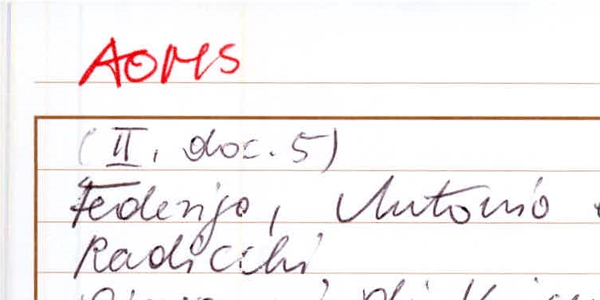 AOMS
(II, doc. 5)
Federigo, Antonio
Radicchi